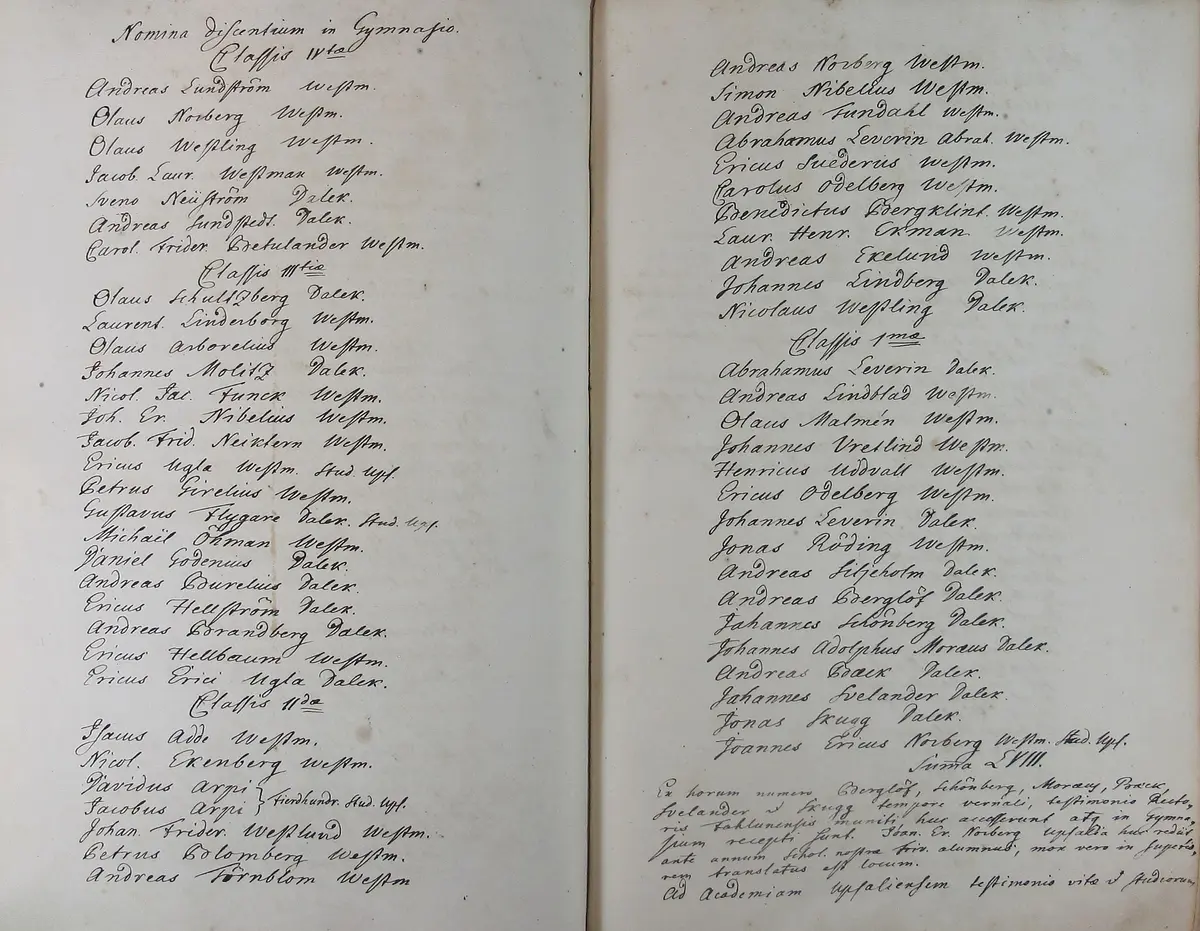 Nomina discentium in Gymnasio.
Classis IVtæ
Andreas Lundström Westm.
Olaus Norberg Westm.
Olaus Weßling Westm.
Jacob. Laur. Westman Westm.
Sveno Neüström Dalek.
Andreas Sundstedt. Dalek.
Carol. Frider. Betulander Westm.
Classis IIItiæ
Olaus Schultzberg Dalek.
Laurent. Linderborg Westm.
Olaus Arborelius Westm.
Johannes Molitz Dalek.
Nicol. Jac. Funck Westm.
Joh. Er. Nibelius Westm.
Jacob. Frid. Neiktern Westm.
Ericus Ugla Westm. Stud. Ups.
Petrus Girelius Westm.
Gustavus Flygare Dalek. Stud. Ups.
Michaël Öhman Westm.
Daniel Godenius Dalek.
Andreas Burelius Dalek.
Ericus Hellström Dalek.
Andreas Brandberg Dalek.
Ericus Hellbaum Westm.
Ericus Erici Ugla Dalek.
Classis IIdæ
Isacus Adde Westm.
Nicol. Ekenberg Westm.
Davidus Arpi
Jacobus Arpi } Fierdhundr. Stud. Ups.
Johan. Frider. Westlund Westm.
Petrus Blomberg Westm.
Andreas Törnblom Westm
Andreas Norberg Westm.
Simon Nibelius Westm.
Andreas Sundahl Westm.
Abrahamus Leverin Abrah. Westm.
Ericus Svederus Westm.
Carolus Odelberg Westm.
Benedictus Bergklint. Westm.
Laur. Henr. Ekman Westm.
Andreas Ekelund Westm.
Johannes Lindberg Dalek.
Nicolaus Weßling Dalek.
Classis 1mæ
Abrahamus Leverin Dalek.
Andreas Lindblad Westm.
Olaus Malmén Westm.
Johannes Vretlind Westm.
Henricus Uddvall Westm.
Ericus Odelberg Westm.
Johannes Leverin Dalek.
Jonas Röding Westm.
Andreas Siljeholm Dalek.
Andreas Berglöf Dalek.
Johannes Schönberg Dalek.
Johannes Adolphus Moræus Dalek.
Andreas Bæck Dalek.
Johannes Svelander Dalek.
Jonas Skugg Dalek.
Joannes Ericus Norberg Westm. Stud. Ups.
Suma LVIII.
Ex horum numero Berglöf, Schönberg, Moræus, Bæck,
Svelander & Skugg tempore vernali, testimonio Recto,
ris Fahlunensis muniti, huc accesserunt atq in Gymna,
sium recepti sunt. Joan. Er. Norberg Upsalia huc rediit
ante annum Schol. nostræ Triv. alumnus, mox vero in superio,
rem translatus est locum.
Ad Academiam Upsaliensem testimonio vitæ & studiorum